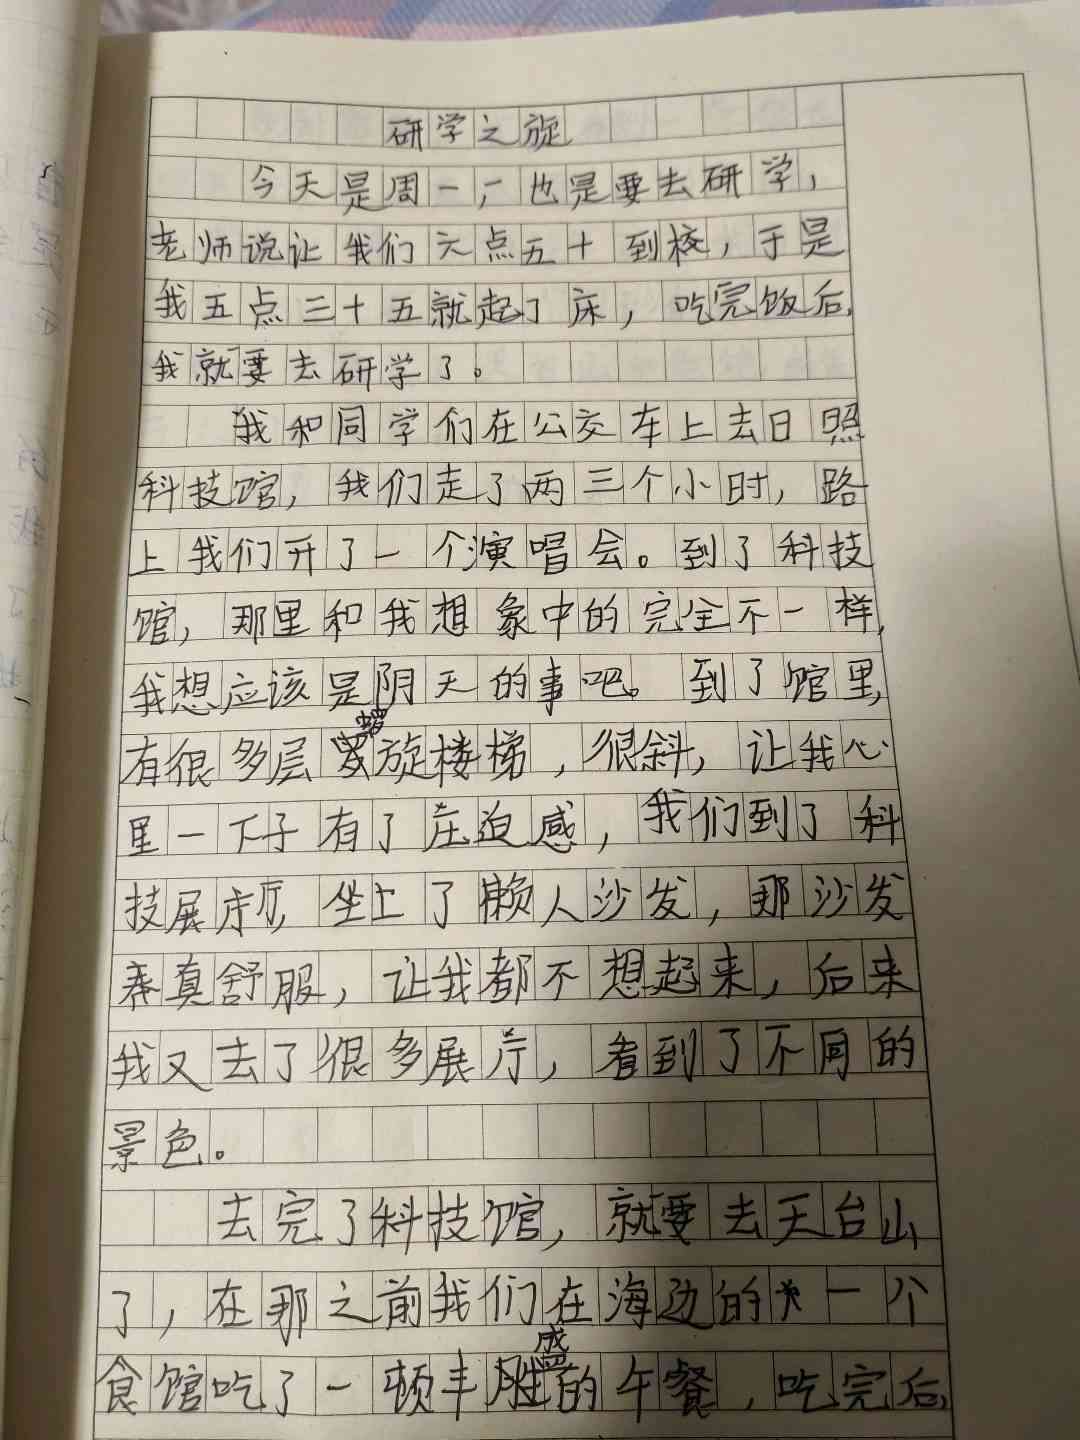 研学之旋
今天是周一，也是要去研学，
老师说让我们六点五十到校，于是
我五点三十五就起了床，吃完饭后，
我就要去研学了。
我和同学们在公交车上去日照
科技馆，我们走了两三个小时，路
上我们开了一个演唱会。到了科技
馆，那里和我想象中的完全不一样，
我想应该是阴天的事吧。到了馆里，
有很多层螺旋楼梯，很斜，让我心
里一下子有了压迫感，我们到了科
技展厅，坐上了懒人沙发，那沙发
真舒服，让我都不想起来，后来
我又去了很多展厅，看到了不同的
景色。
去完了科技馆，就要去天台山
了，在那之前我们在海边的一个
食馆吃了一顿丰盛的午餐，吃完后，